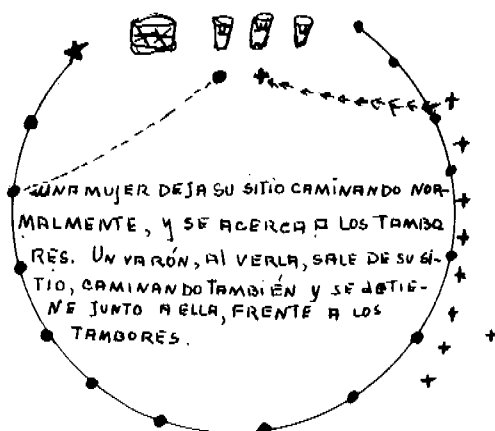 UNA MUJER DEJA SU SITIO CAMINANDO NOR-
MALMENTE, Y SE ACERCA A LOS TAMBO
RES. UN VARÓN, AL VERLA, SALE DE SU SI-
TIO, CAMINANDO TAMBIÉN Y SE DETIE-
NE JUNTO A ELLA, FRENTE A LOS
TAMBORES.